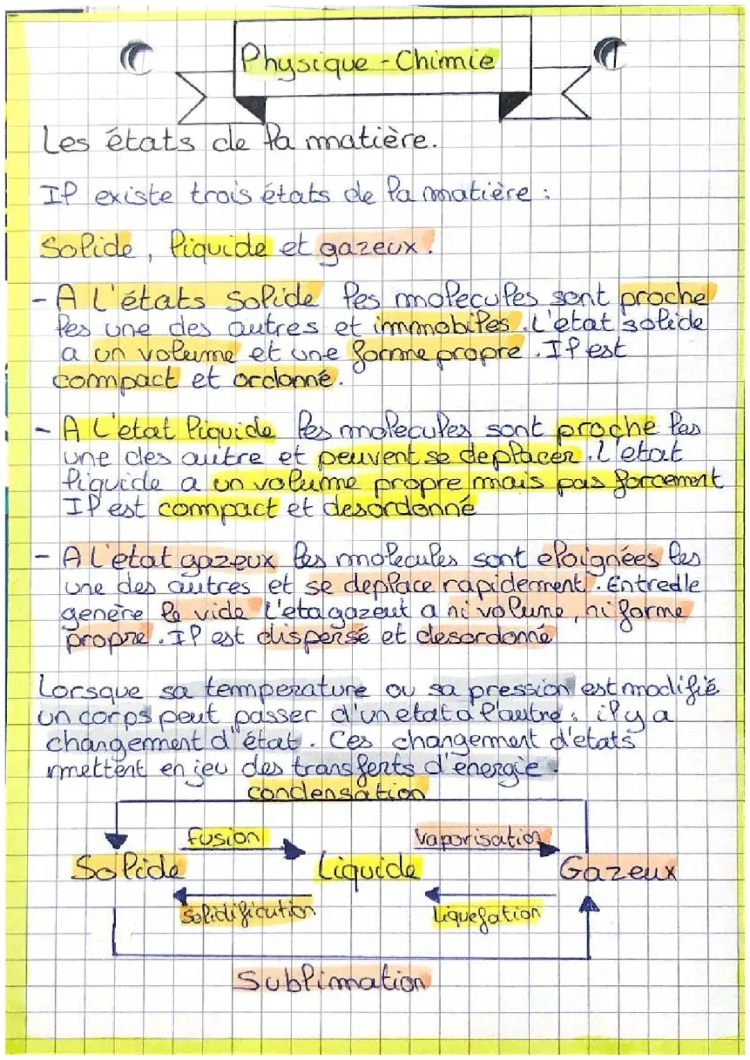 Physique - Chimie
Les états de la matière.
Il existe trois états de la matière :
Solide, liquide et gazeux.
- A l'états solide les molecules sont proche
les une des autres et immobiles. L'etat solide
a un volume et une forme propre. Il est
compact et ordonné.
- A l'etat liquide les molecules sont proche les
une des autre et peuvent se deplacer. L'etat
liquide a un volume propre mais pas forcement
Il est compact et desordonné
- A l'etat gazeux les molecules sont eloignées les
une des autres et se deplace rapidement. Entredle
genère le vide l'eta gazeut a ni volume, ni forme
propre. Il est dispersé et desordonné
Lorsque sa temperature ou sa pression est modifié
un corps peut passer d'un etat a l'autre : il y a
changement d'état. Ces changement d'etats
mettent en jeu des transferts d'énergie.
condensation
fusion
vaporisation
Solide
Liquide
Gazeux
Solidification
Liquefation
Sublimation